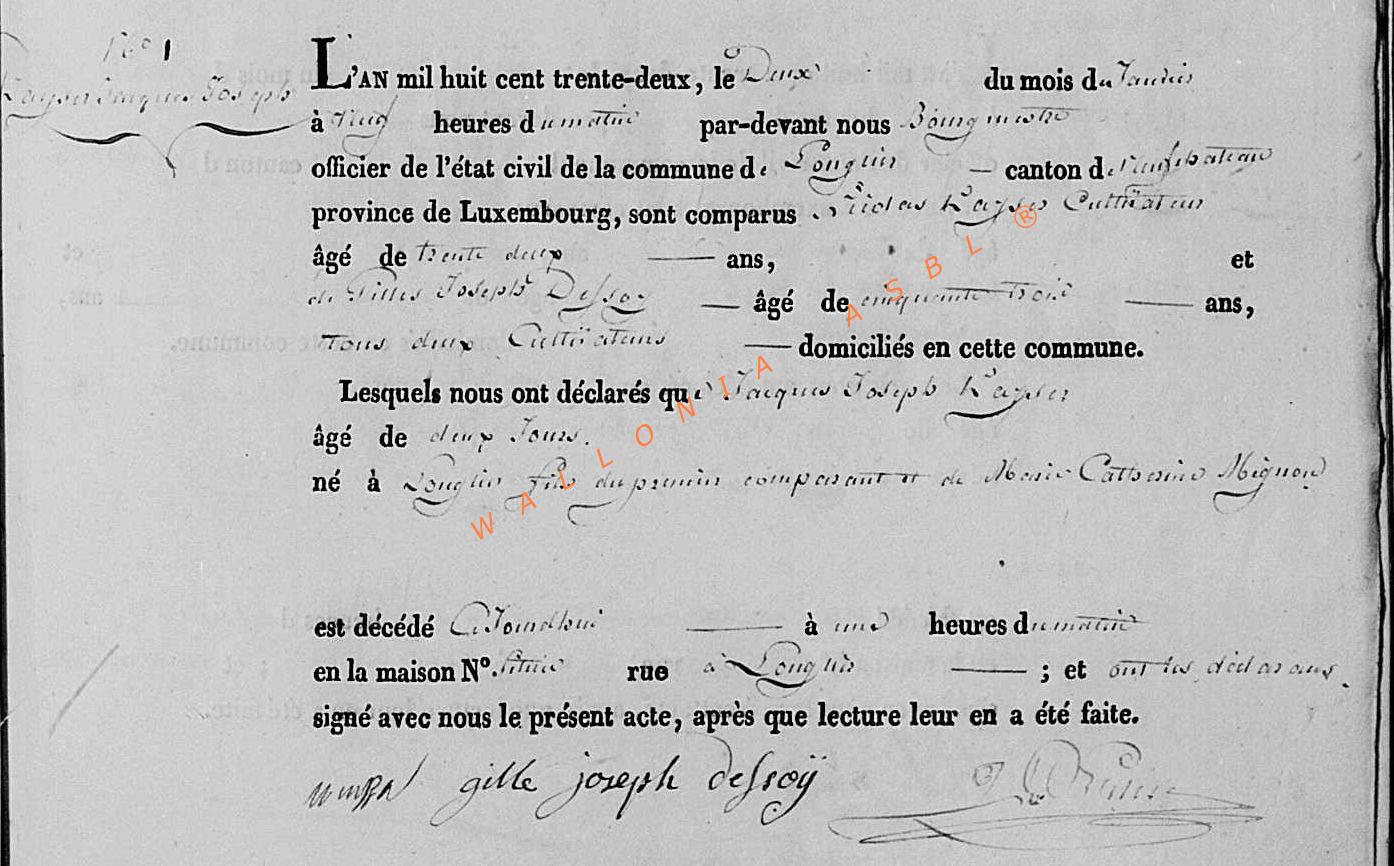 N° 1
Kayser Jacques Joseph
L'AN mil huit cent trente-deux, le Deux du mois de Janvier
à Neuf heures du matin par-devant nous Bourgmestre
officier de l'état civil de la commune de Longlier — canton de Neufchateau
province de Luxembourg, sont comparus Nicolas Kayser Cultivateur
âgé de trente deux — ans, et
de Gilles Joseph Dessoy — âgé de cinquante trois — ans,
Tous deux Cultivateurs — domiciliés en cette commune.
Lesquels nous ont déclarés que Jacques Joseph Kayser
âgé de deux Jours.
né à Longlier fils du premier comparant et de Marie Catherine Mignon
est décédé à une heures du matin
en la maison N°. rue à Longlier — ; et ont les déclarans
signé avec nous le présent acte, après que lecture leur en a été faite.
gille joseph dessoÿ
WALLONIA ASBL ®